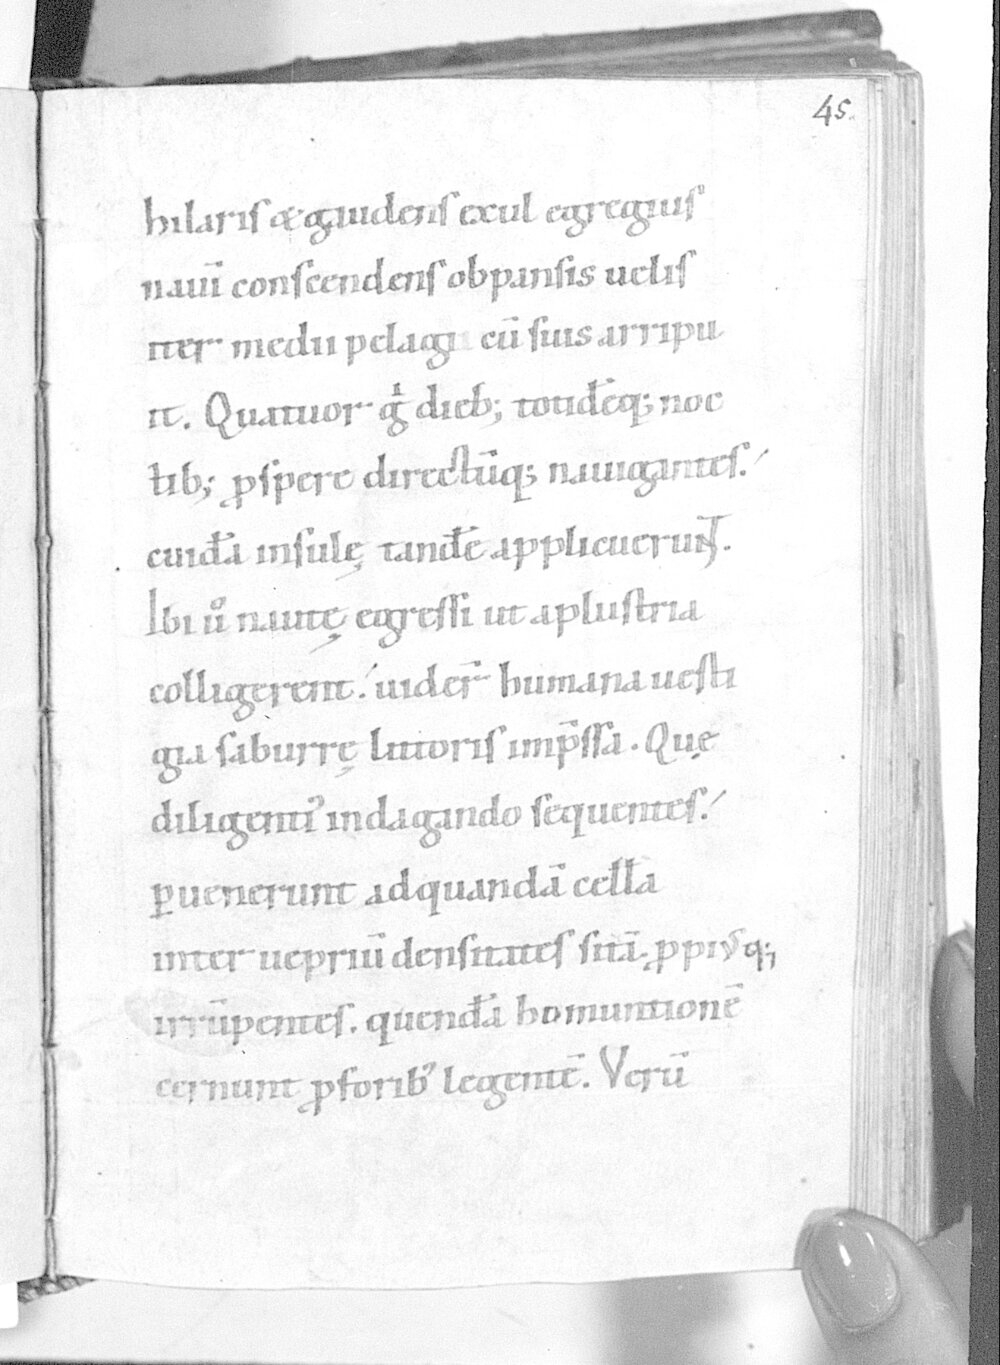 45.
hilaris & gaudens exul egregius
nauī conscendens obpansis uelis
iter medii pelagi cū suis arripu
it. Quatuor gͥ dieb; totidēq; noc
tib; ꝓspere directūq; nauigantes.
cuidā insulę tandē applicuerunt.
Ibi uͦ nautę egressi ut aplustria
colligerent. uiderͬ humana uesti
gia saburrę littoris imp̄ssa. Quę
diligentiꝰ indagando sequentes.
ꝑuenerunt ad quandā cellā
inter ueprıū densitates sitā. ꝓpiusq;
irrūpentes. quendā homuntionē
cernunt ꝓ foribꝰ legentē. Verū